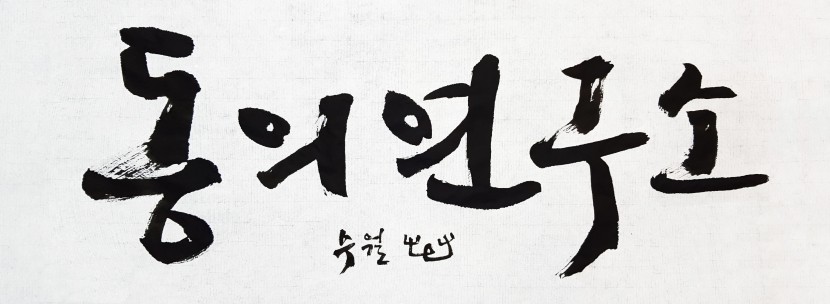 동의연구소
수월